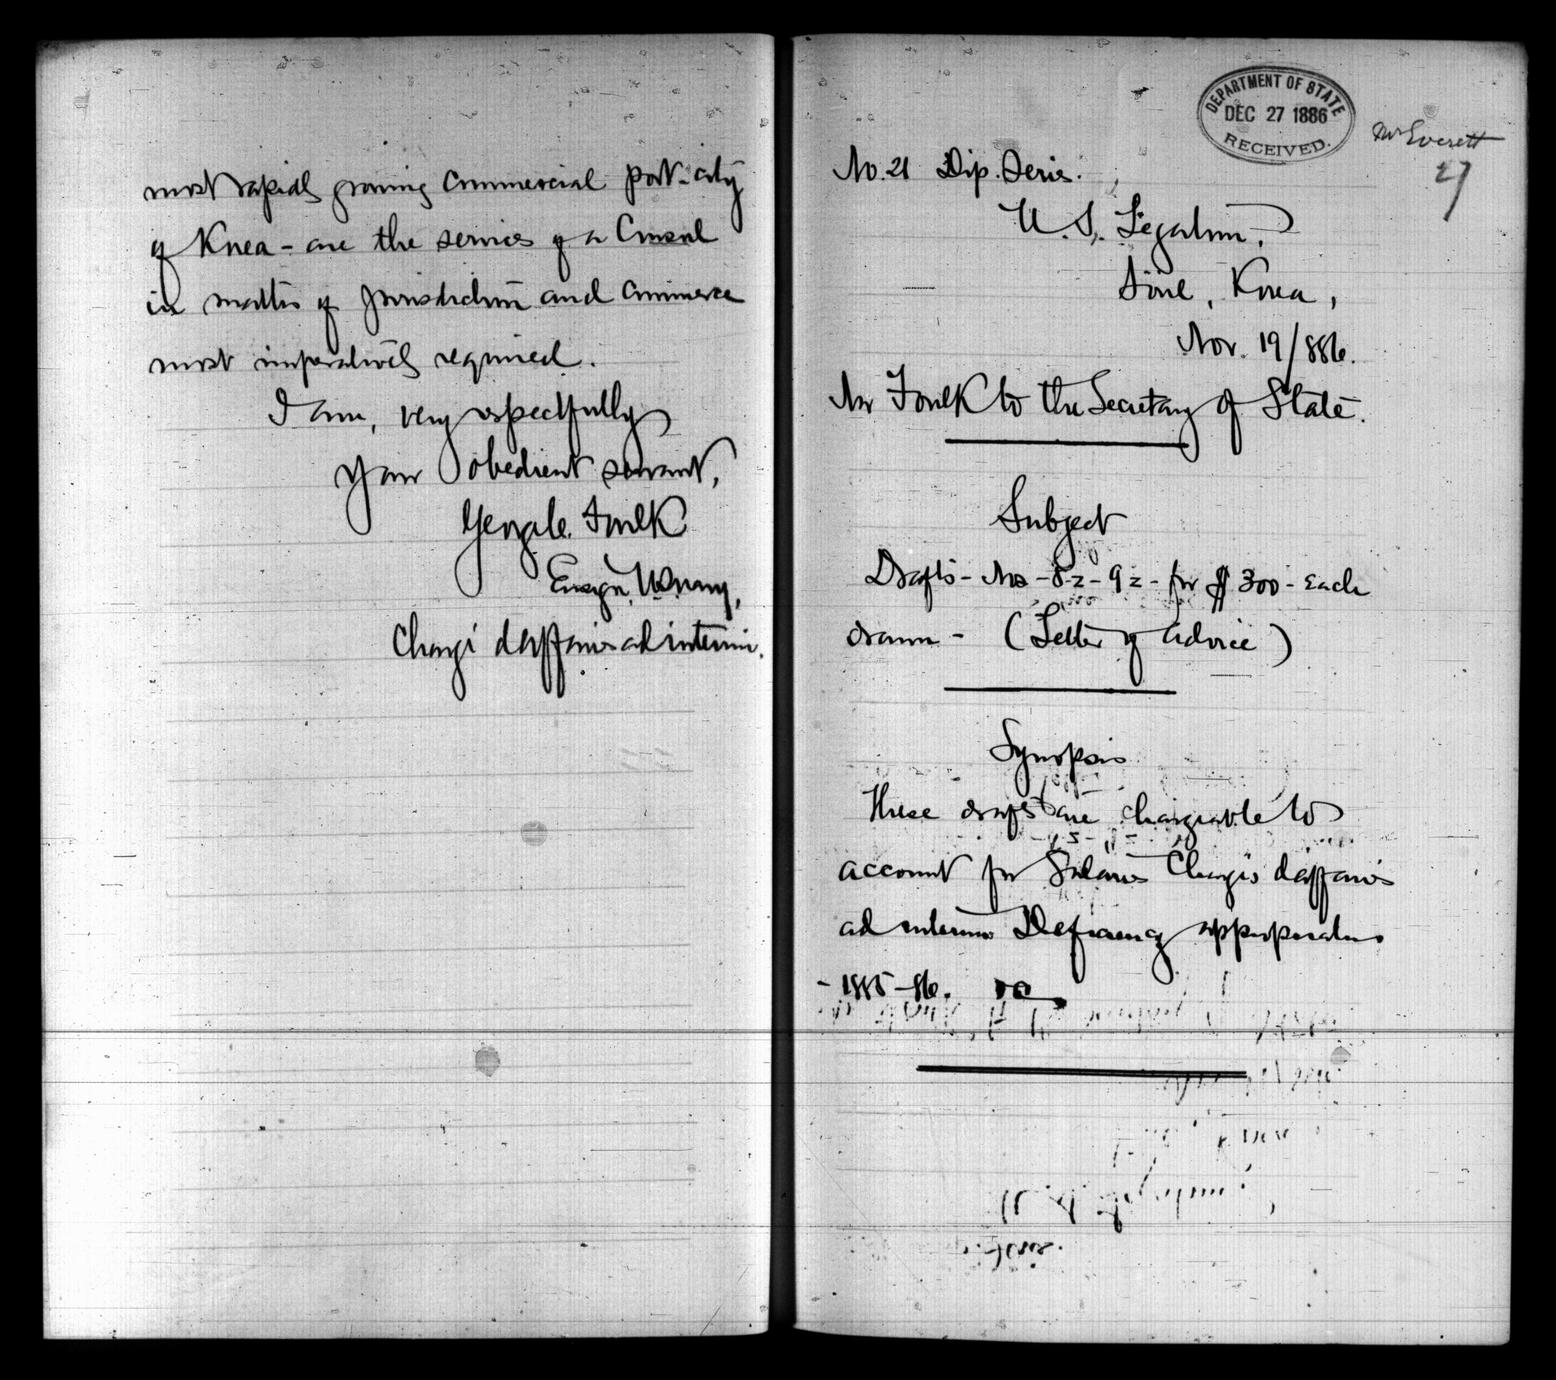 most rapidly growing commercial port-city
of Korea - are the services of a Consul
in matters of jurisdiction and commerce
most imperatively required.
I am, very respectfully
Your obedient servant,
George C. Foulk
Ensign, U.S. Navy,
Chargé d'affaires ad interim.
DEPARTMENT OF STATE
DEC 27 1886
RECEIVED.
Mr Everett
27
No. 21 Dip. Series.
U. S. Legation,
Söul, Korea,
Nov. 19/886.
Mr Foulk to the Secretary of State.
Subject
Drafts - Nos - 8z - 9z - for $300 - each
drawn - (Letter of advice)
Synopsis
These drafts are chargeable to
account for Salaries Chargés d'affaires
ad interim Deficiency appropriations
- 1885-86.